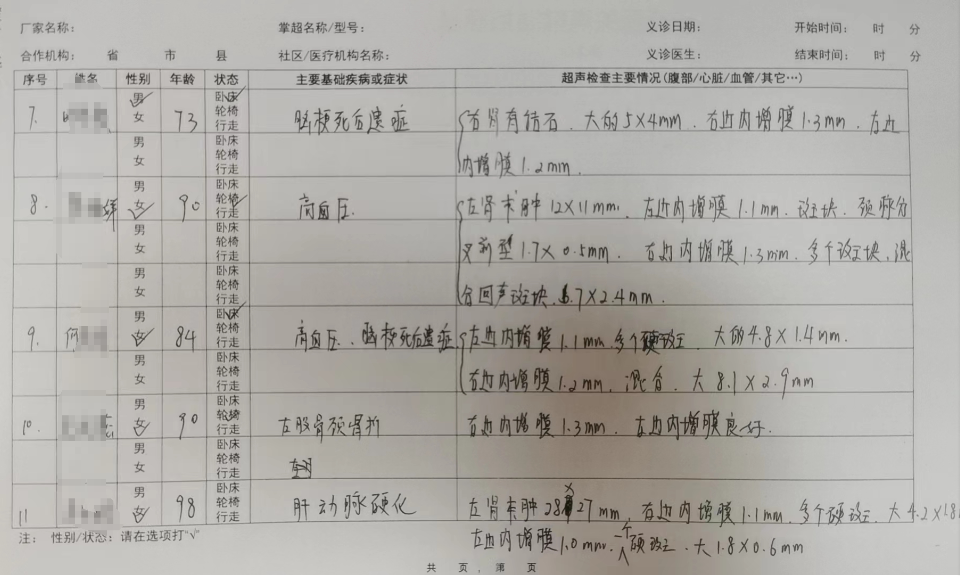 厂家名称： 掌超名称/型号： 义诊日期： 开始时间： 时 分
合作机构： 省 市 县 社区/医疗机构名称： 义诊医生： 结束时间： 时 分
序号 姓名 性别 年龄 状态 主要基础疾病或症状 超声检查主要情况(腹部/心脏/血管/其它…)
7. 男✓ 女 73 卧床✓ 轮椅 行走 脑梗死后遗症 右肾有结石、大的5×4mm、右边内增膜1.3mm、左边
男 女 卧床 轮椅 行走 内增膜1.2mm.
8. 男 女✓ 90 卧床 轮椅✓ 行走 高血压. 左肾 肿12×11mm、左边内增膜1.1mm、斑块、颈脖分
男 女 卧床 轮椅 行走 叉 型1.7×0.5mm、右边内增膜1.3mm、多个斑块、混
男 女 卧床 轮椅 行走 合回声斑块、6.7×2.4mm.
9. 何 男 女✓ 84 卧床✓ 轮椅 行走 高血压、脑梗死后遗症 左边内增膜1.1mm、多个硬斑、大的4.8×1.4mm.
男 女 卧床 轮椅 行走 右边内增膜1.2mm、混合、大8.1×2.9mm
10. 男 女✓ 90 卧床 轮椅✓ 行走 左股骨颈骨折 右边内增膜1.3mm、左边内增膜良好.
男 女 卧床 轮椅 行走
11 男 女✓ 98 卧床 轮椅 行走✓ 肝动脉硬化 左肾 肿28×27mm、右边内增膜1.1mm、多个硬斑、大4.2×1.8
注： 性别/状态：请在选项打"√" 左边内增膜1.0mm、一个硬斑、大1.8×0.6mm
共 页，第 页